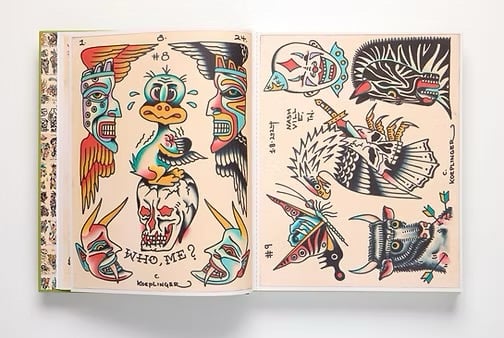 1. 8. 24.
#8
WHO, ME?
C.
KOEPLINGER
NASH
VILL
E,
1·8·2024
C.
KOEPLINGER
#9